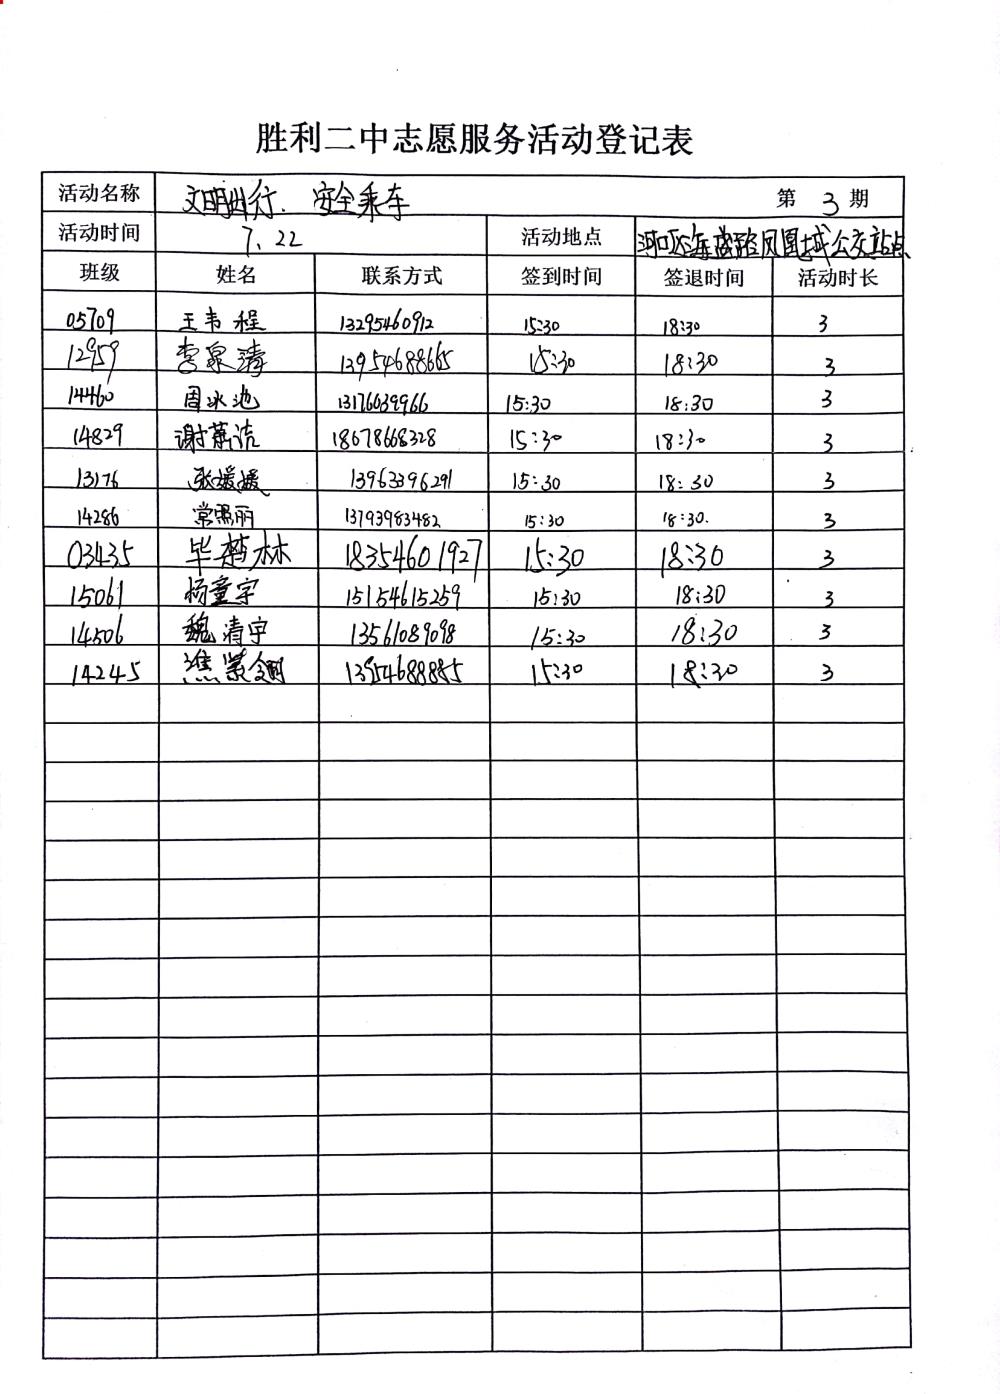 胜利二中志愿服务活动登记表
活动名称 文明出行、安全乘车 第 3 期
活动时间 7、22 活动地点 河口区海盛路凤凰城公交站点
班级 姓名 联系方式 签到时间 签退时间 活动时长
05709 王韦程 13295460912 15:30 18:30 3
12959 李泉清 13954688665 15:30 18:30 3
14460 周冰池 13176639966 15:30 18:30 3
14829 谢 洁 18678668328 15:30 18:30 3
13176 张媛媛 13963396291 15:30 18:30 3
14286 常 丽 13793983482 15:30 18:30. 3
03435 毕 林 18354601927 15:30 18:30 3
15061 杨童宇 15154615259 15:30 18:30 3
14506 魏清宇 13561089098 15:30 18:30 3
14245 紫 13954688885 15:30 18:30 3